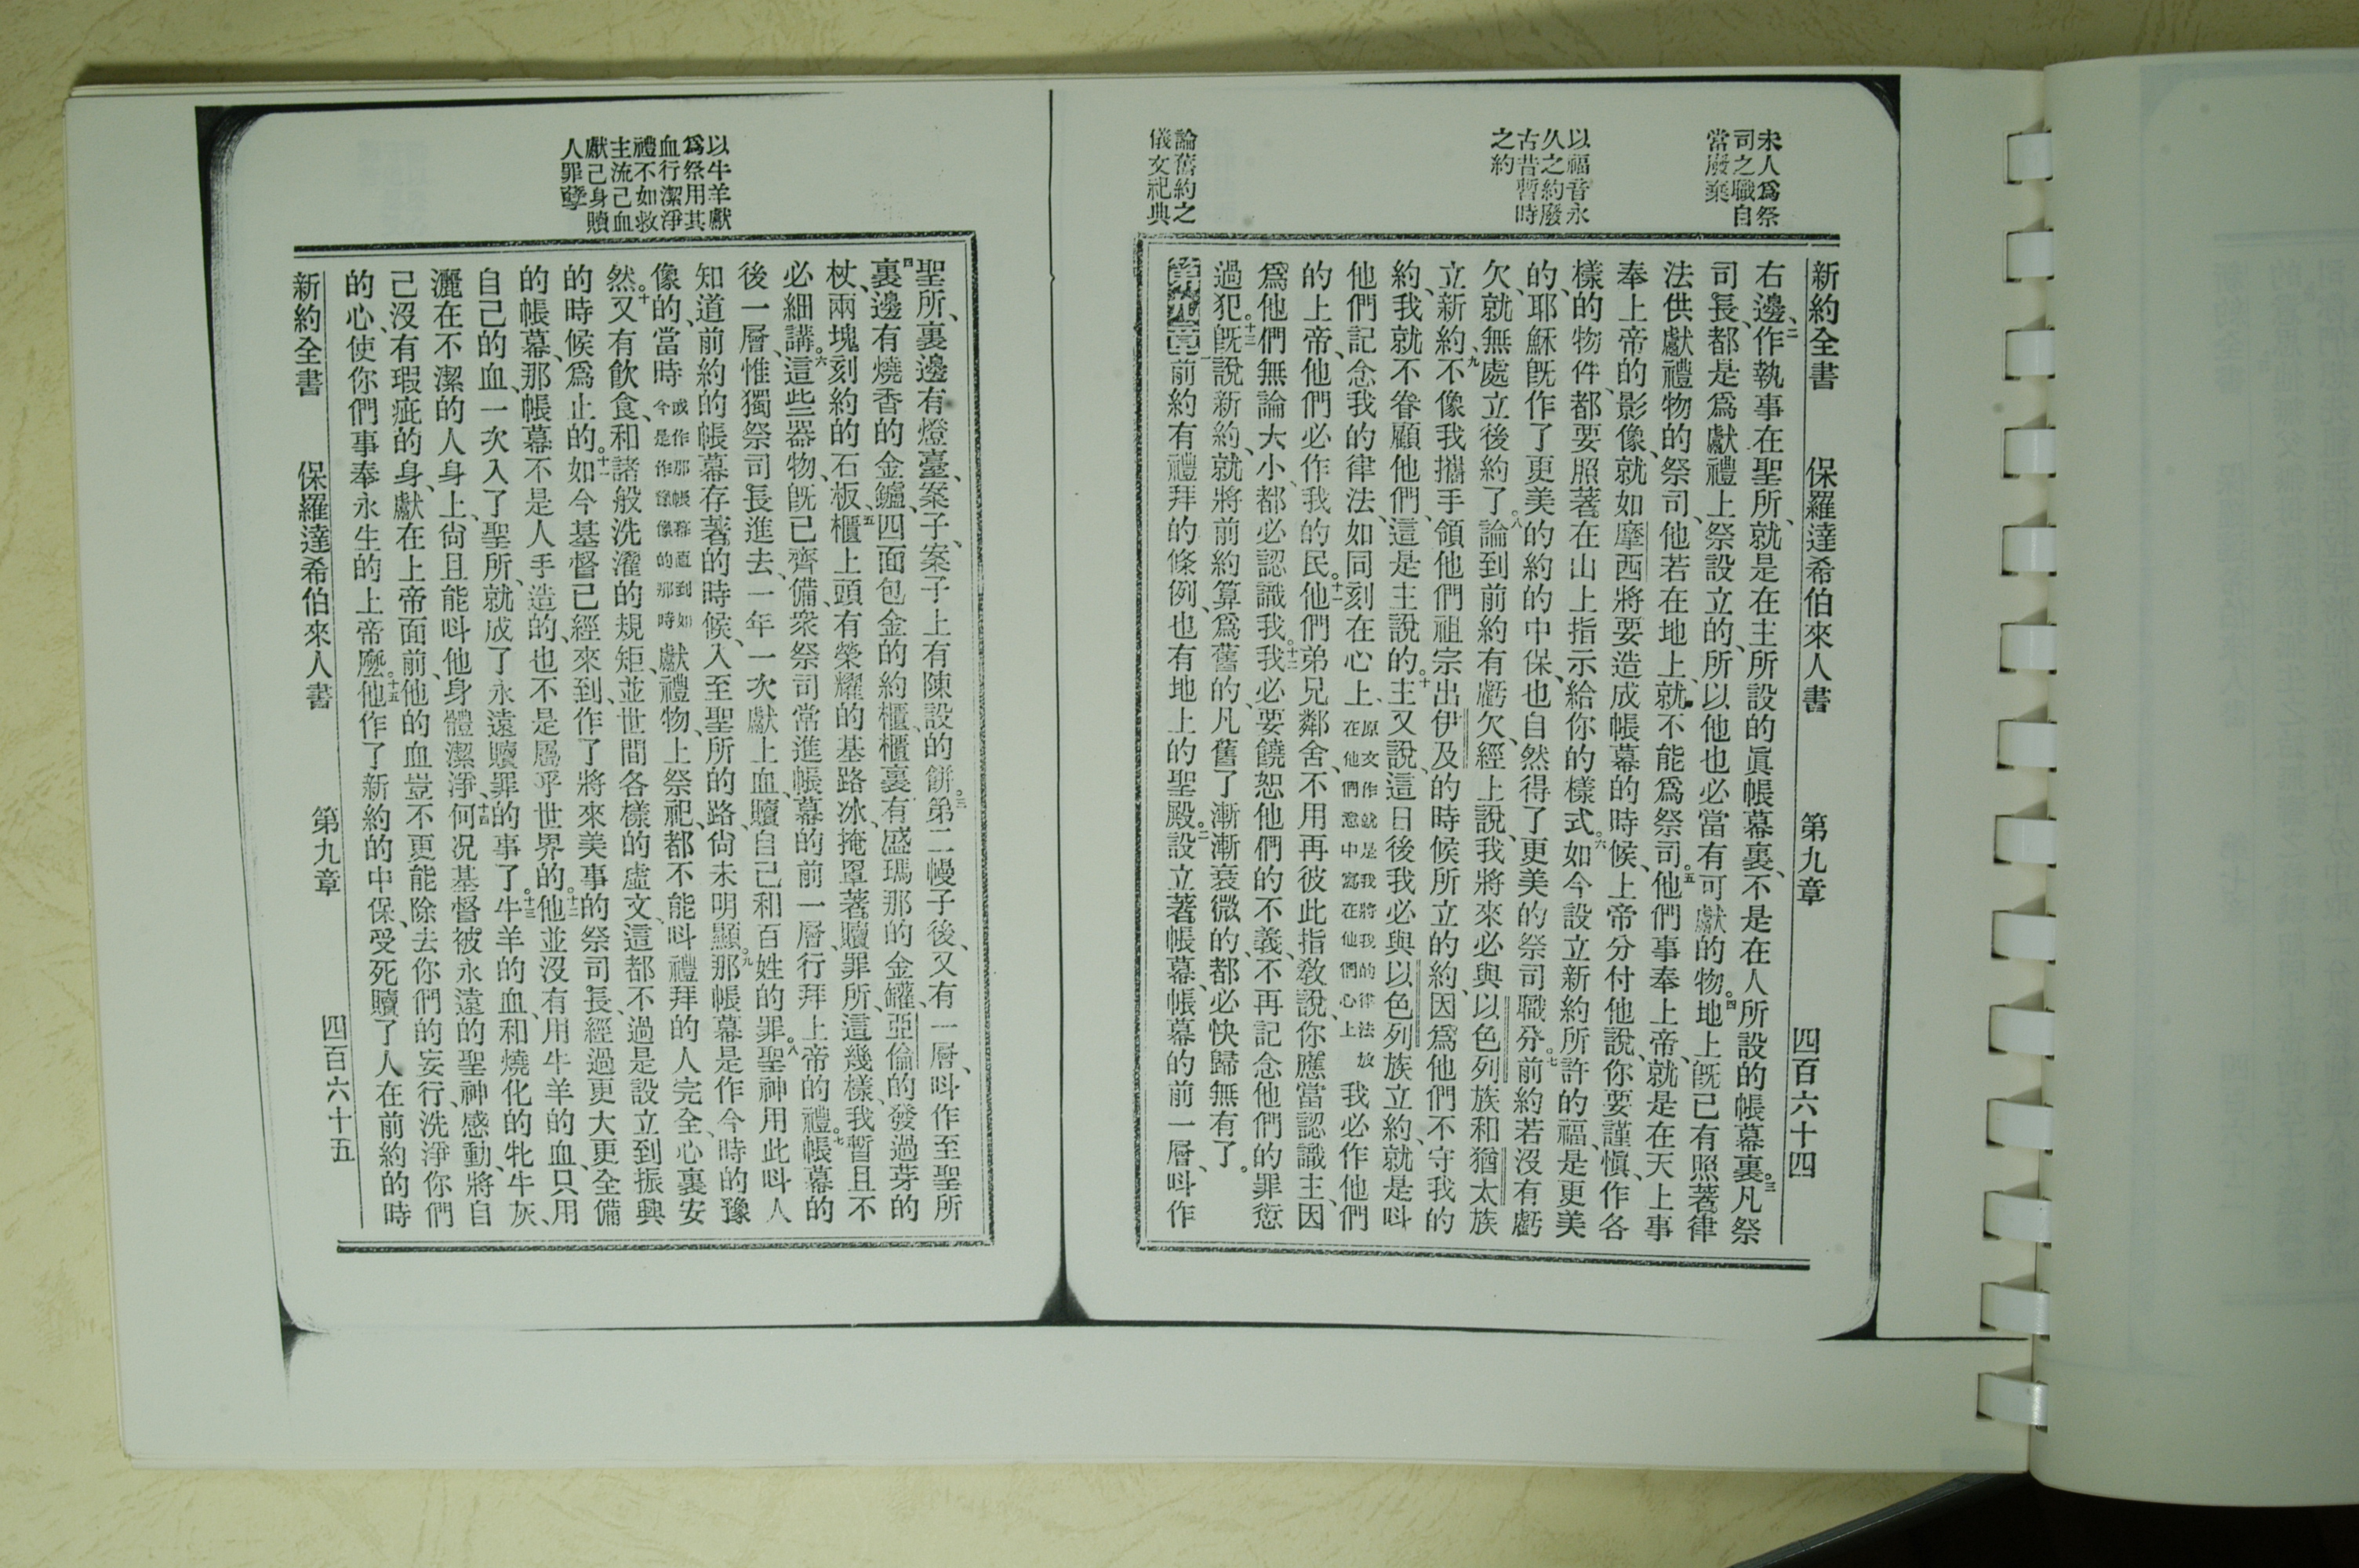 新約全書 保羅達希伯來人書 第九章 四百六十四
未人爲祭
司之職自
當廢棄
以福音永
久之約廢
古昔暫時
之約
論舊約之
儀文祀典
右邊、二作執事在聖所、就是在主所設的眞帳幕裏、不是在人所設的帳幕裏。三凡祭
司長、都是爲獻禮上祭設立的、所以他也必當有可獻的物。四地上旣已有照著律
法供獻禮物的祭司、他若在地上、就不能爲祭司。五他們事奉上帝、就是在天上事
奉上帝的影像、就如摩西將要造成帳幕的時候、上帝分付他說、你要謹愼、作各
樣的物件、都要照著在山上指示給你的樣式。六如今設立新約所許的福、是更美
的、耶穌旣作了更美的約的中保、也自然得了更美的祭司職分。七前約若沒有虧
欠、就無處立後約了。八論到前約有虧欠、經上說、我將來必與以色列族和猶太族
立新約、九不像我攜手領他們祖宗出伊及的時候所立的約、因爲他們不守我的
約、我就不眷顧他們、這是主說的。十主又說、這日後我必與以色列族立約、就是呌
他們記念我的律法、如同刻在心上、原文作就是我將我的律法放在他們意中寫在他們心上 我必作他們
的上帝、他們必作我的民。十一他們弟兄鄰舍、不用再彼此指敎說、你應當認識主、因
爲他們無論大小、都必認識我。十二我必要饒恕他們的不義、不再記念他們的罪愆
過犯。十三旣說新約、就將前約算爲舊的、凡舊了漸漸衰微的、都必快歸無有了。
第九章 一前約有禮拜的條例、也有地上的聖殿。二設立著帳幕、帳幕的前一層、呌作
以牛羊獻
爲祭用其
血行潔淨
禮不如救
主流己血
獻己身贖
人罪孽
聖所、裏邊有燈臺、案子、案子上有陳設的餅。三第二幔子後、又有一層、呌作至聖所
四裏邊有燒香的金鑪、四面包金的約櫃、櫃裏有盛瑪那的金罐、亞倫的發過芽的
杖、兩塊刻約的石板、五櫃上頭有榮耀的基路冰、掩罩著贖罪所、這幾樣、我暫且不
必細講。六這些器物、旣已齊備、衆祭司常進帳幕的前一層、行拜上帝的禮。七帳幕的
後一層、惟獨祭司長進去、一年一次獻上血、贖自己和百姓的罪。八聖神用此呌人
知道前約的帳幕存著的時候、入至聖所的路、尙未明顯。九那帳幕是作今時的豫
像的、當時 或作那帳幕直到如今是作豫像的那時 獻禮物、上祭祀、都不能呌禮拜的人完全、心裏安
然。十又有飮食、和諸般洗濯的規矩、並世間各樣的虛文、這都不過是設立到振興
的時候爲止的。十一如今基督已經來到、作了將來美事的祭司長、經過更大更全備
的帳幕、那帳幕不是人手造的、也不是屬乎世界的。十二他並沒有用牛羊的血、只用
自己的血、一次入了聖所、就成了永遠贖罪的事了。十三牛羊的血、和燒化的牝牛灰、
灑在不潔的人身上、尙且能呌他身體潔淨、十四何况基督被永遠的聖神感動、將自
己沒有瑕疵的身、獻在上帝面前、他的血豈不更能除去你們的妄行、洗淨你們
的心、使你們事奉永生的上帝麼。十五他作了新約的中保、受死贖了人在前約的時
新約全書 保羅達希伯來人書 第九章 四百六十五